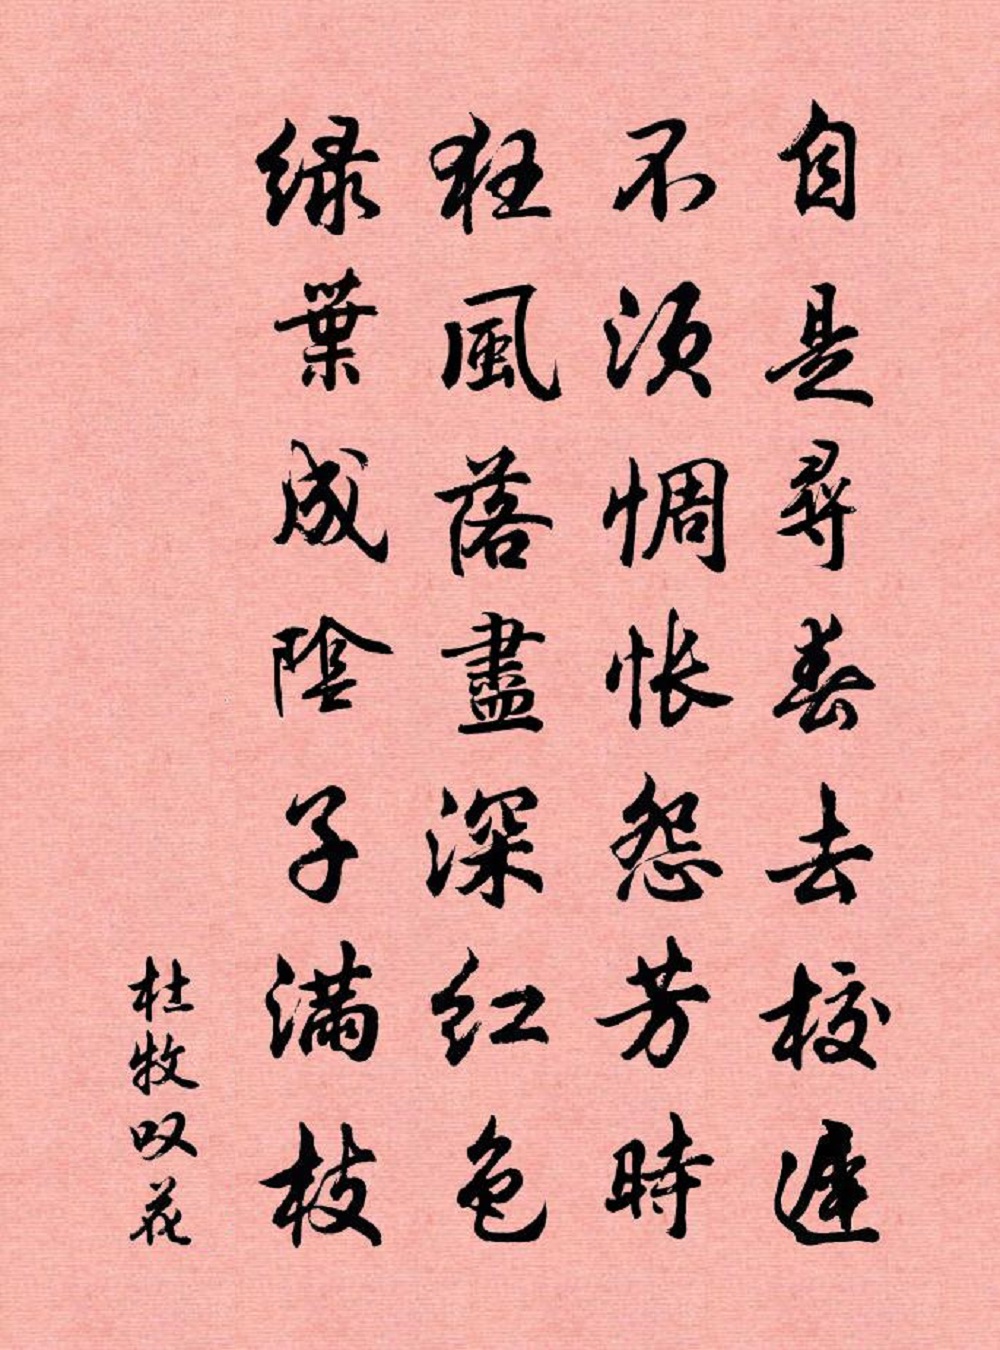 自是尋春去校遲
不須惆悵怨芳時
狂風落盡深紅色
綠葉成陰子滿枝
杜牧叹花